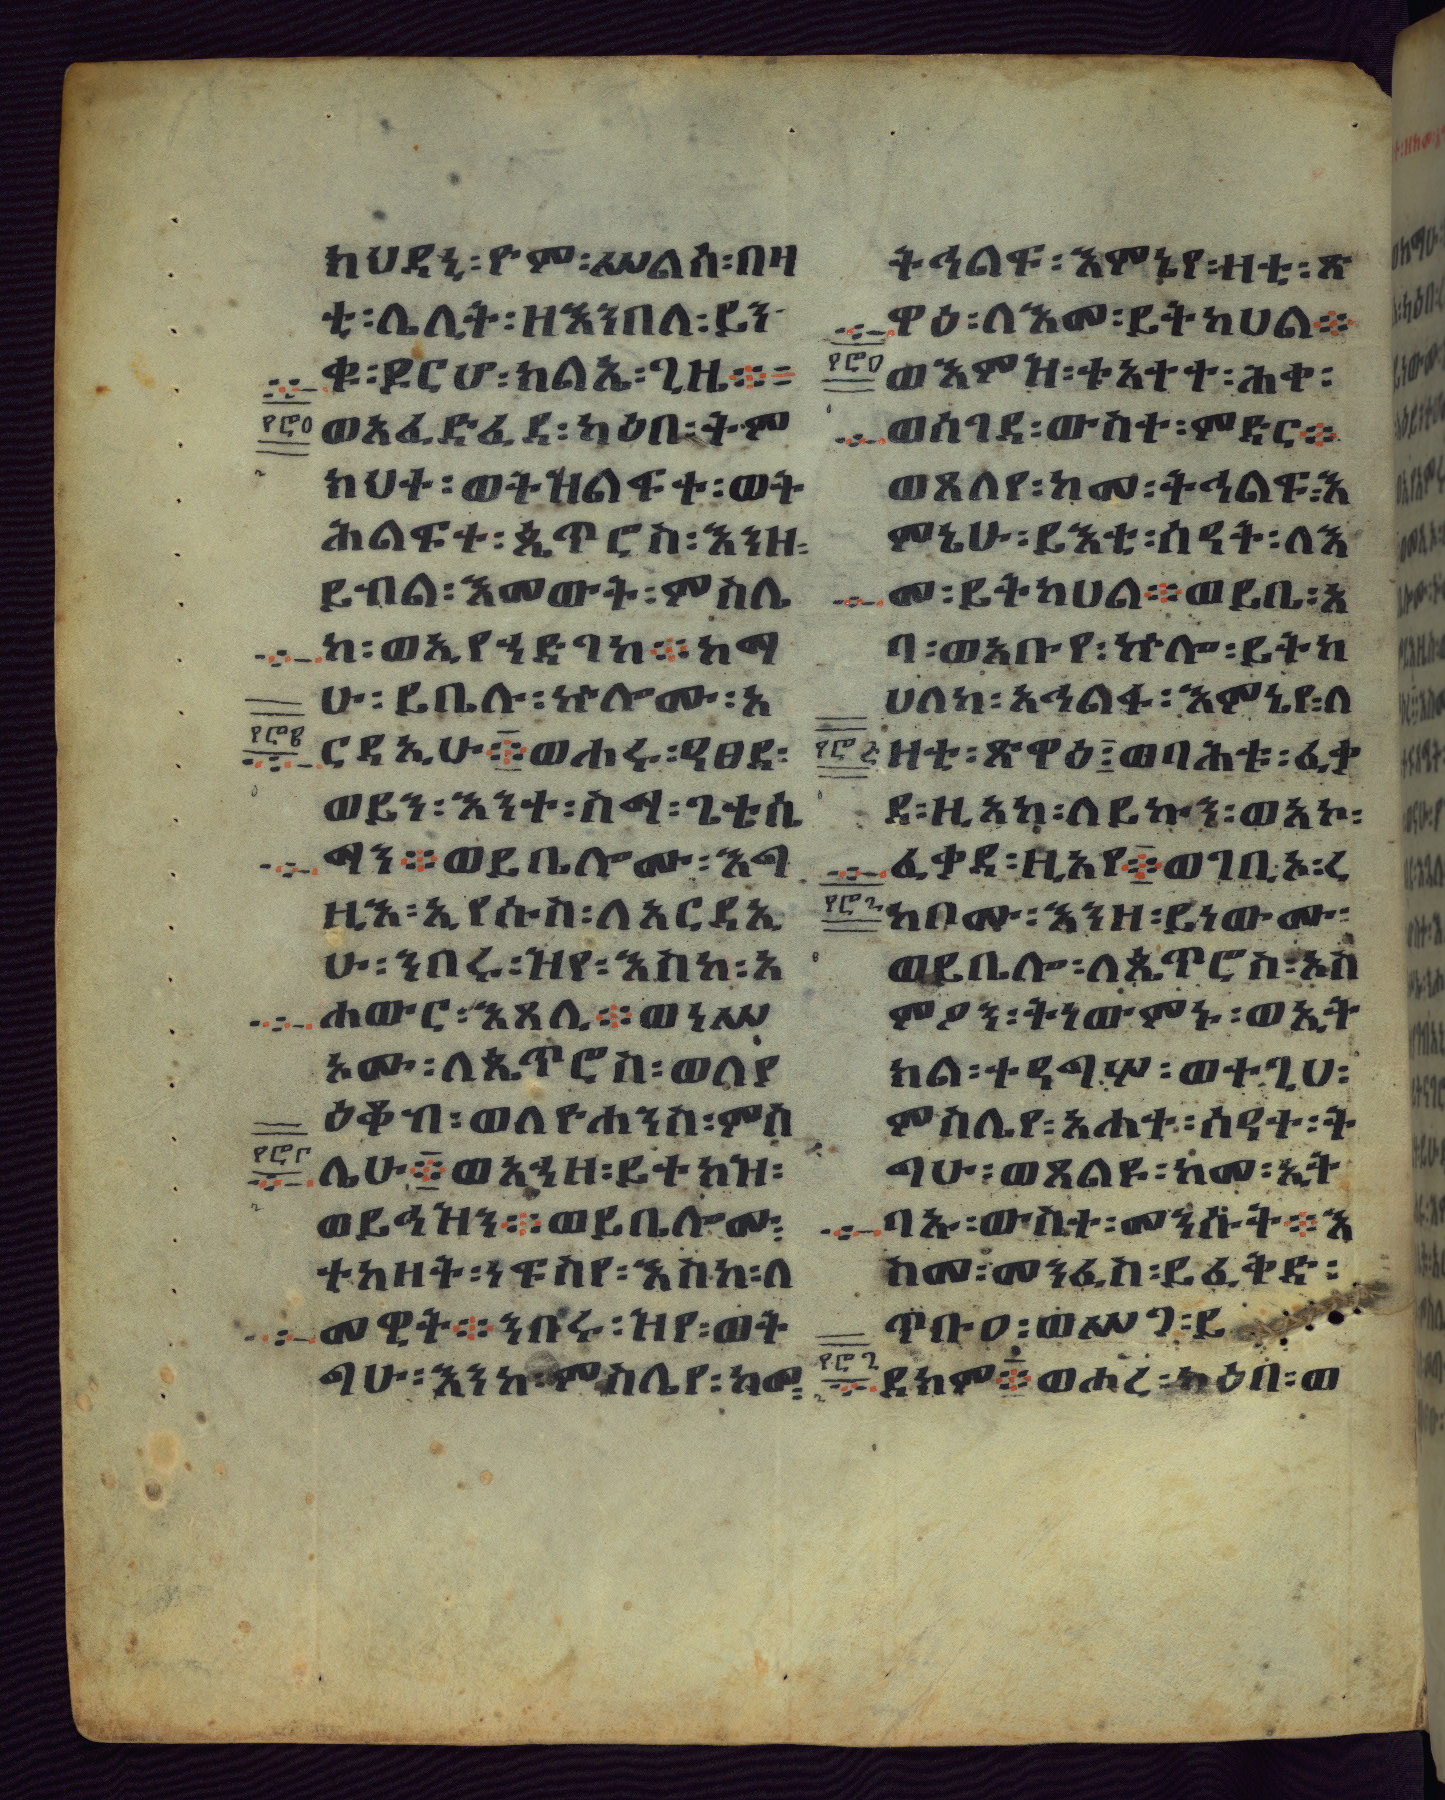 ክህደኒ፡ዮም፡ሠልሰ፡በዛ
ቲ፡ሌሊት፡ዘእንበለ፡ይን
ቁ፡ዶርሆ፡ክልኤ፡ጊዜ፨=
ወአፈድፈደ፡ካዕበ፡ትም
ክህተ፡ወትዝልፍተ፡ወት
ሕልፍተ፡ጴጥሮስ፡እንዘ፡
ይብል፡እመውት፡ምስሌ
ከ፡ወኢየኀድገከ፨ከማ
ሁ፡ይቤሉ፡ኵሎሙ፡አ
ርዳኢሁ፨ወሐሩ፡ዓፀደ፡
ወይን፡እንተ፡ስማ፡ጌቴሴ
ማን፨ወይቤሎሙ፡እግ
ዚእ፡ኢየሱስ፡ለአርዳኢ
ሁ፡ንበሩ፡ዝየ፡እስከ፡አ
ሐውር፡እጸሊ፨ወነሥ
አሙ፡ለጴጥሮስ፡ወለያ
ዕቆብ፡ወለዮሐንስ፡ምስ
ሌሁ፨ወአኀዘ፡ይተክዝ፡
ወይኅዝን፨ወይቤሎሙ፡
ተከዘት፡ነፍስየ፡እስከ፡ለ
መዊት፨ንበሩ፡ዝየ፡ወት
ግሁ፡እንከ፡ምስሌየ፡ከመ፡
ትኅልፍ፡እምኔየ፡ዛቲ፡ጽ
ዋዕ፡ለእመ፡ይትከሀል፨
ወእምዝ፡ተአተተ፡ሕቀ፡
ወሰገደ፡ውስተ፡ምድር፨
ወጸለየ፡ከመ፡ትኅልፍ፡እ
ምኔሁ፡ይእቲ፡ሰዓት፡ለእ
መ፡ይትከሀል፨ወይቤ፡አ
ባ፡ወአቡየ፡ኵሎ፡ይትከ
ሀለከ፡አኅልፋ፡እምኔየ፡ለ
ዛቲ፡ጽዋዕ፨ወባሕቱ፡ፈቃ
ደ፡ዚአከ፡ለይኩን፡ወአኮ፡
ፈቃደ፡ዚአየ፨ወገቢኦ፡ረ
ከቦሙ፡እንዘ፡ይነውሙ፡
ወይቤሎ፡ለጴጥሮስ፡ኦስ
ምዖን፡ትነውምኑ፡ወኢት
ክል፡ተዓግሦ፡ወተጊሀ፡
ምስሌየ፡አሐተ፡ሰዓተ፡ት
ግሁ፡ወጸልዩ፡ከመ፡ኢት
ባኡ፡ውስተ፡መንሱት፨እ
ስመ፡መንፈስ፡ይፈቅድ፡
ጥቡዐ፡ወሥጋ፡ይ
ደክም፨ወሐረ፡ካዕበ፡ወ